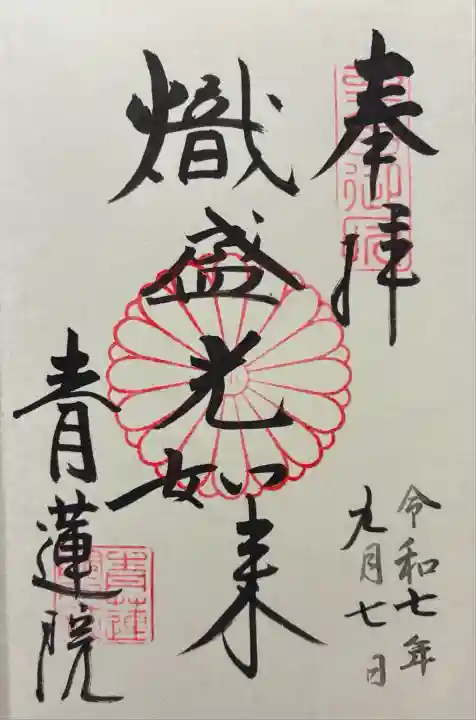 奉拝
令和七年
九月七日
熾盛光如来
青蓮院